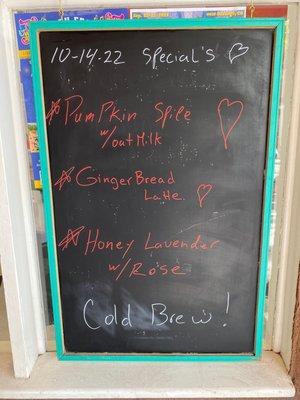 10-14-22 Special's
Pumpkin Spice
w/oatMilk
GingerBread
Latte.
Honey Lavender
w/Rose
Cold Brew!